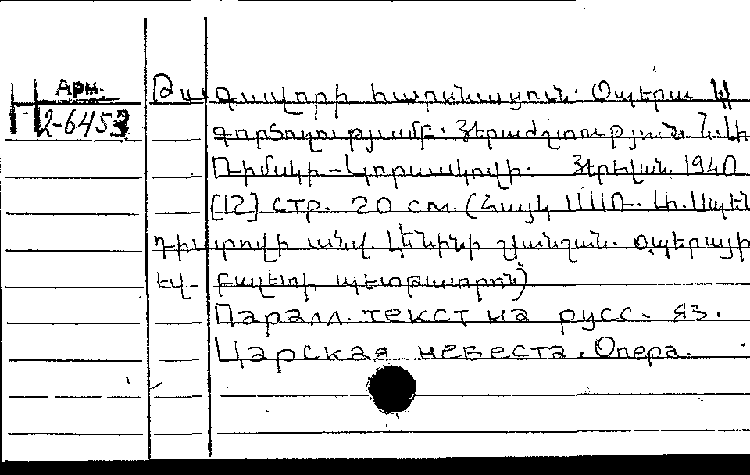 Арм.
Н 2-6453
Թագավորի հարսնացուն. Օպերա 4
գործողությամբ. Յերաժշտություն Ն.Ա.
Ռիմսկի-Կորսակովի. Յերևան. 1940
[12] стр. 20 см. (Հայկ ՍՍՌ. Ա. Սպեն
դիարովի անվ. Լենինի շքանշան. օպերայի
եվ բալետի պետթատրոն)
Паралл. текст на русс. яз.
Царская невеста. Опера.